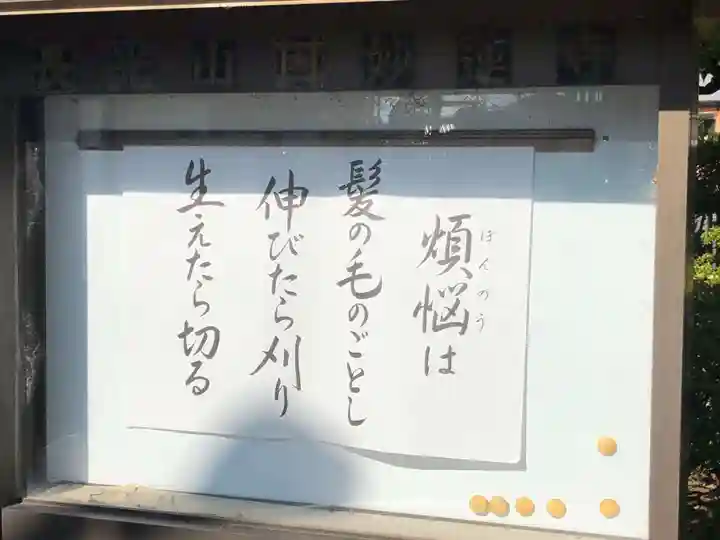 煩悩は
ぼんのう
髪の毛のごとし
伸びたら刈り
生えたら切る